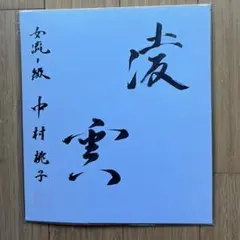 凌雲
女流一級
中村桃子